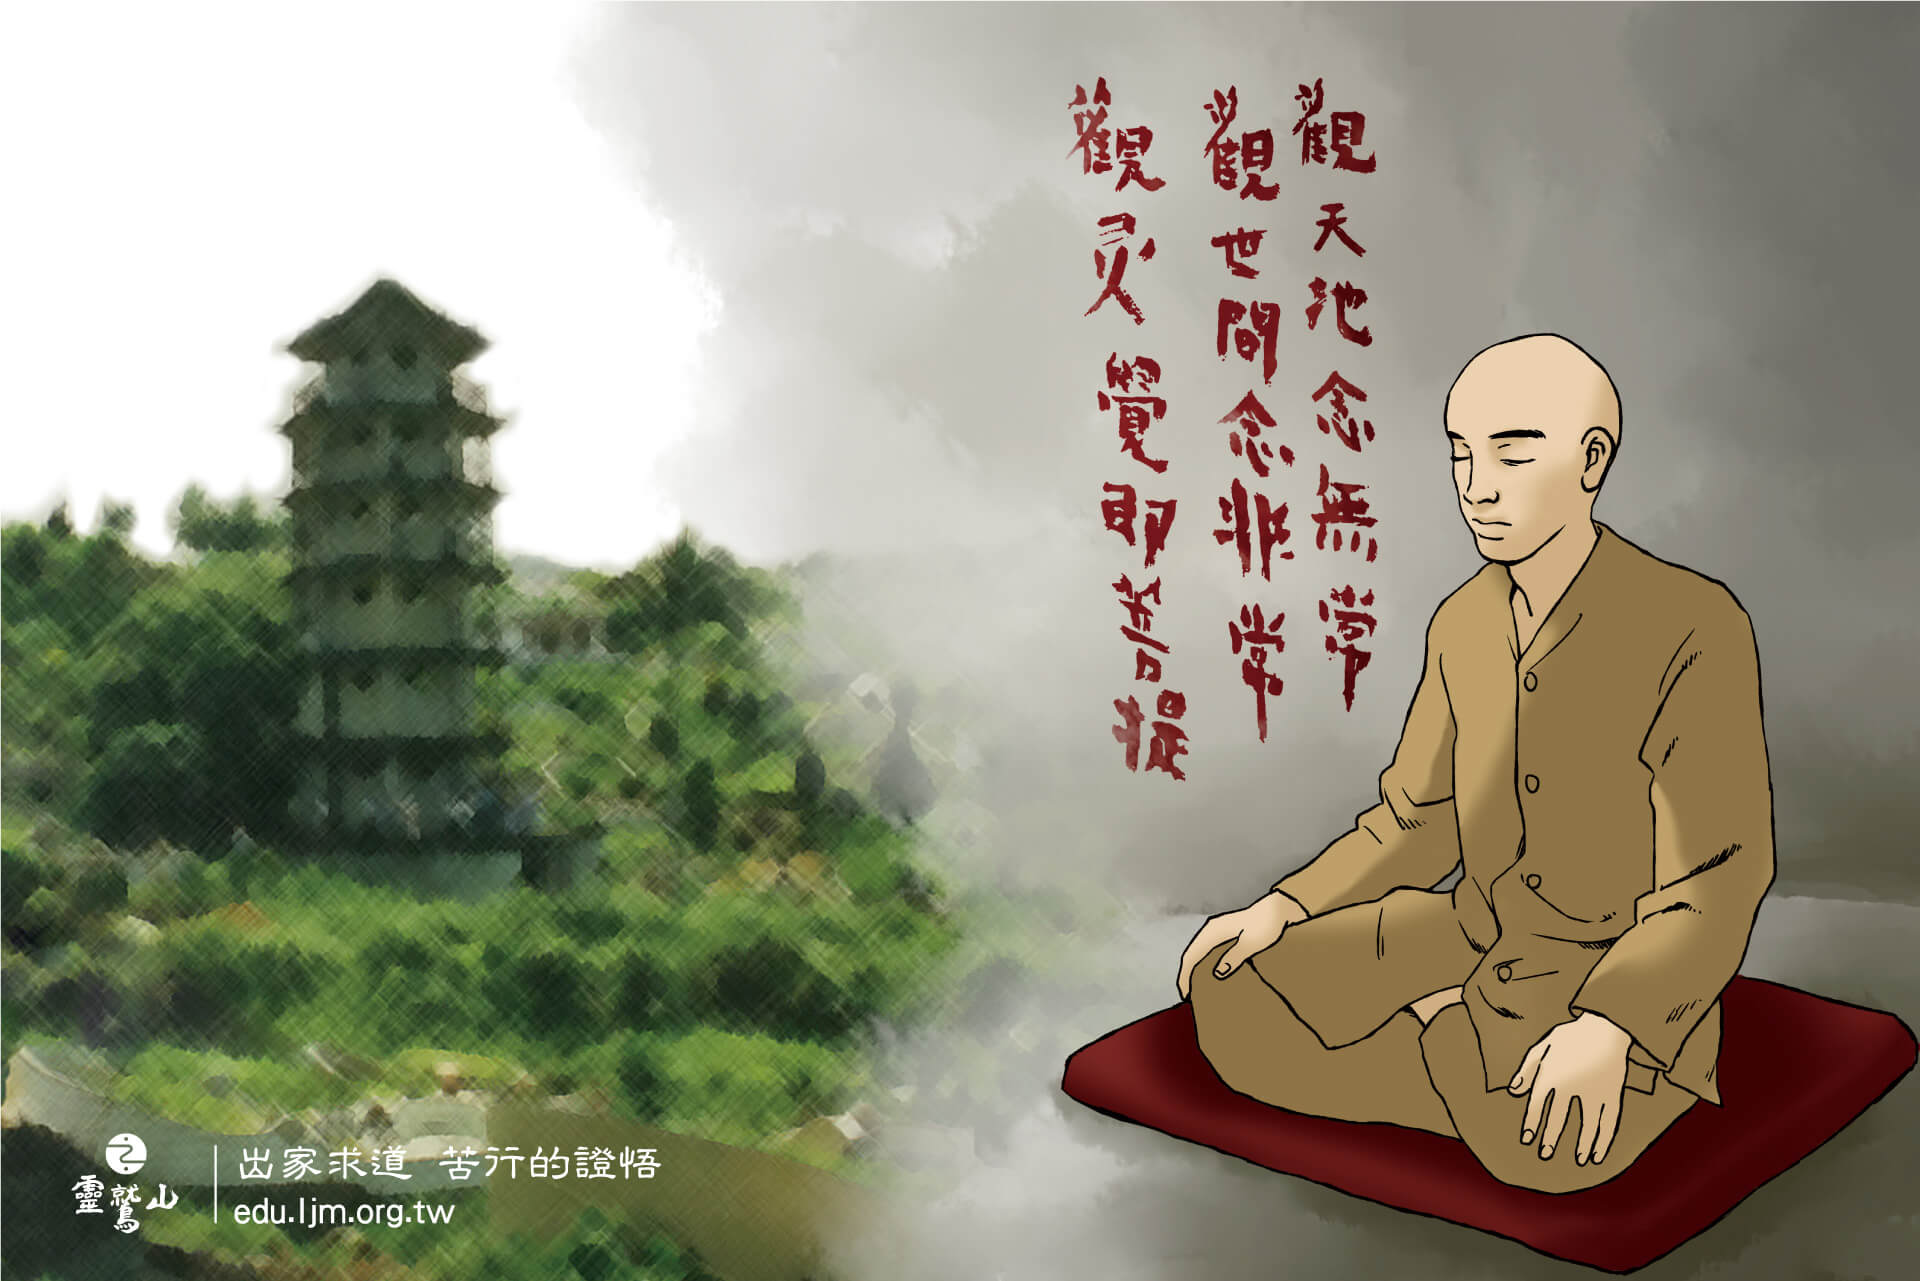 觀天池念無常
觀世間念非常
觀灵覺即菩提
靈鷲山
出家求道 苦行的證悟
edu.ljm.org.tw